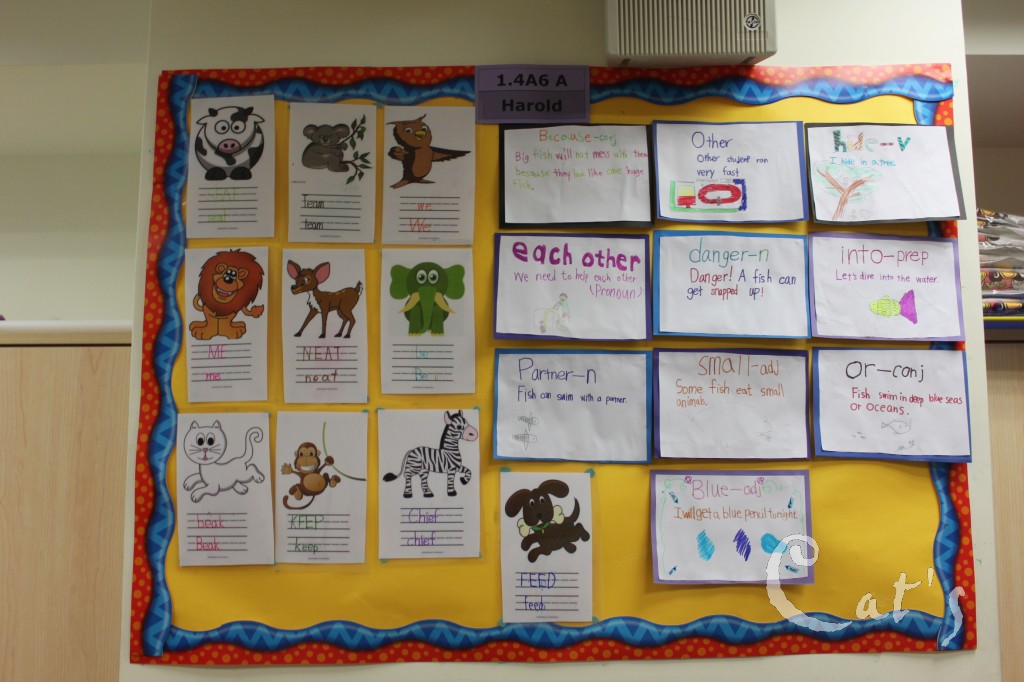 1.4A6 A
Harold
seat
team
team
we
We
Because-conj
Big fish will not mess with them
because they look like one huge
fish.
Other
Other student ran
very fast
hide-v
I hide in a tree.
ME
me
NEAT
neat
be
Be
each other
We need to help each other
(Pronoun)
danger-n
Danger! A fish can
get snapped up!
into-prep
Let's dive into the water.
Partner-n
Fish can swim with a partner.
small-adj
Some fish eat small
animals.
or-conj
Fish swim in deep blue seas
or oceans.
beak
Beak
KEEP
keep
Chief
chief
FEED
feed
Blue-adj
I will get a blue pencil tonight.
Cat's